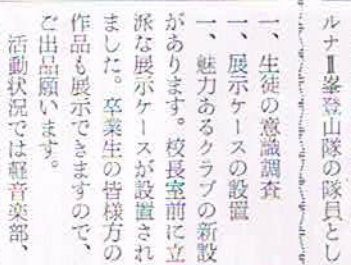 ルナⅡ峯登山隊の隊員とし
一、生徒の意識調査
一、展示ケースの設置
一、魅力あるクラブの新設
があります。校長室前に立
派な展示ケースが設置され
ました。卒業生の皆様方の
作品も展示できますので、
ご出品願います。
活動状況では軽音楽部、